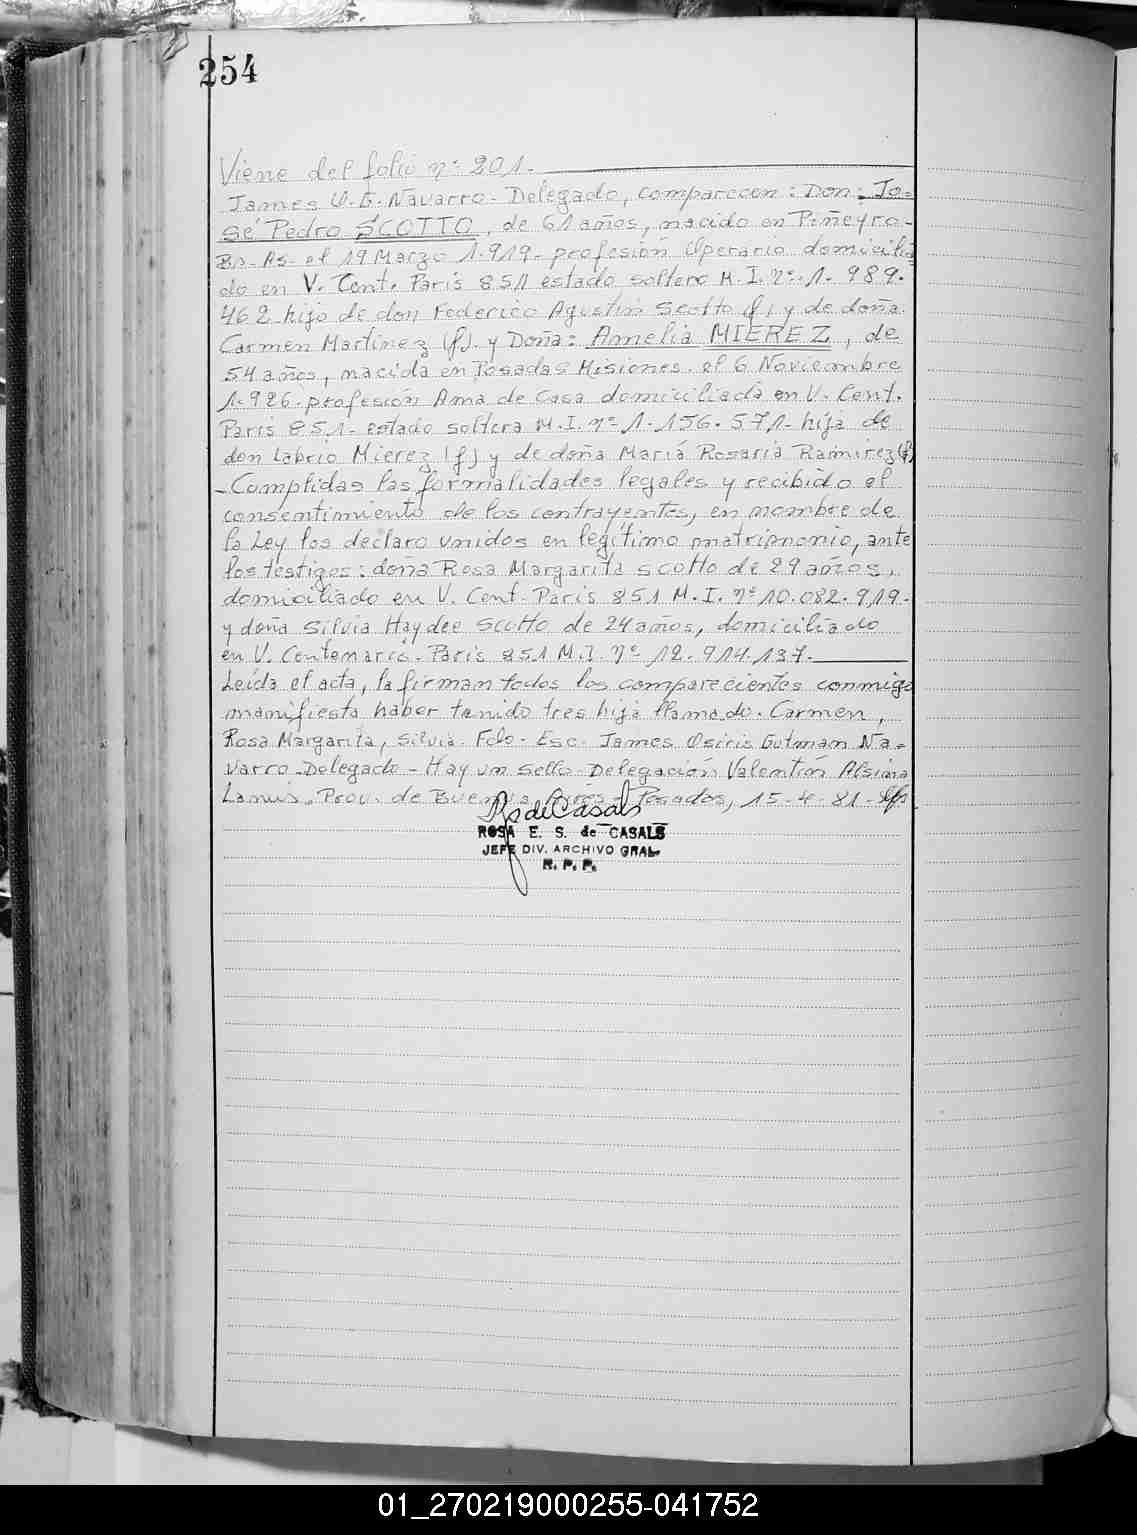 254
Viene del folio nº 201.
James O. G. Navarro - Delegado, comparecen: Don: Jo=
sé Pedro SCOTTO, de 61 años, nacido en Piñeyro-
Bs. As. el 19 Marzo 1.919- profesión Operario domicilia
do en V. Cent. Paris 851 estado soltero M. I. nº 1. 989.
462 hijo de don Federico Agustín Scotto (f) y de doña
Carmen Martinez (f). y Doña: Amelia MIEREZ, de
54 años, nacida en Posadas Misiones. el 6 Noviembre
1.926. profesión Ama de Casa domiciliada en V. Cent.
Paris 851- estado soltera M. I. nº 1. 156. 571- hija de
don Labrio Mierez (f) y de doña María Rosaria Ramirez (f)
- Cumplidas las formalidades legales y recibido el
consentimiento de los contrayentes, en nombre de
la Ley los declaro unidos en legítimo matrimonio, ante
los testigos: doña Rosa Margarita Scotto de 29 años,
domiciliado en V. Cent. Paris 851 M. I. nº 10.082.919.
y doña Silvia Haydee Scotto de 24 años, domiciliado
en V. Centenario. Paris 851 M. I. nº 12. 914.137.
Leída el acta, la firman todos los comparecientes conmigo
manifiesta haber tenido tres hija llamado. Carmen,
Rosa Margarita, Silvia. Fdo. Esc. James Osiris Gutman Na=
varro - Delegado - Hay un sello - Delegación Valentín Alsina
Lanús. Prov. de Buenos Aires - Posadas, 15-4-81-
RosdeCasals
ROSA E. S. de CASALS
JEFE DIV. ARCHIVO GRAL.
R. P. P.
01_270219000255-041752